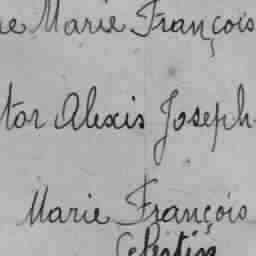 e Marie François
tor Alexis Joseph
Marie François
Célestin